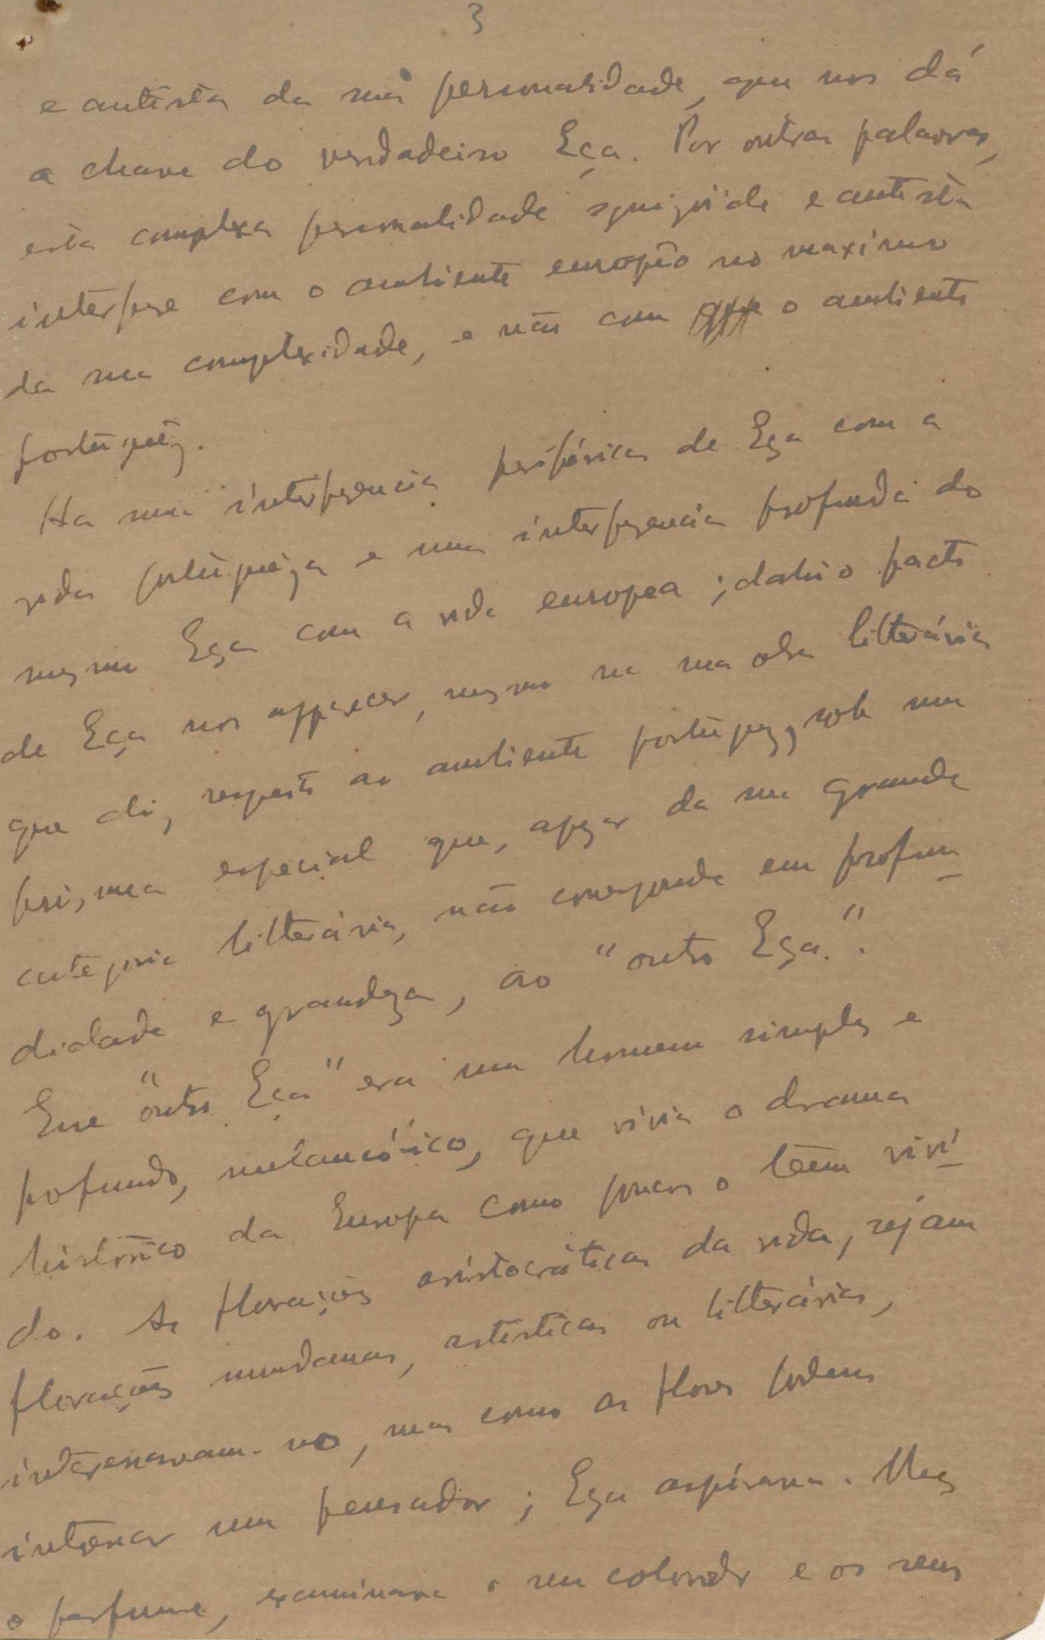 3
e autista da sua personalidade, que nos dá
a chave do verdadeiro Eça. Por outras palavras,
esta complexa personalidade esquizoide e autista
interfere com o ambiente européo no maximo
da sua complexidade, e não com o ambiente
portuguêz.
Ha uma interferencia periférica de Eça com a
vida portugueza e uma interferencia profunda do
mesmo Eça com a vida europea; dahi o facto
de Eça nos apparecer, mesmo na sua obra litterária
que diz respeito ao ambiente portuguez, sob um
prisma especial que, apezar da sua grande
categoria litterária, não corresponde em profun-
didade e grandeza, ao "outro Eça".
Esse "outro Eça" era um homem simples e
profundo, melancólico, que vivia o drama
histórico da Europa como poucos o teem vivi-
do. As florações aristocráticas da vida, sejam
florações mundanas, artisticas ou litterárias,
interessavam-no, mas como as flores podem
interessar um pensador; Eça aspirava-lhes
o perfume, examinava o seu colorido e os seus